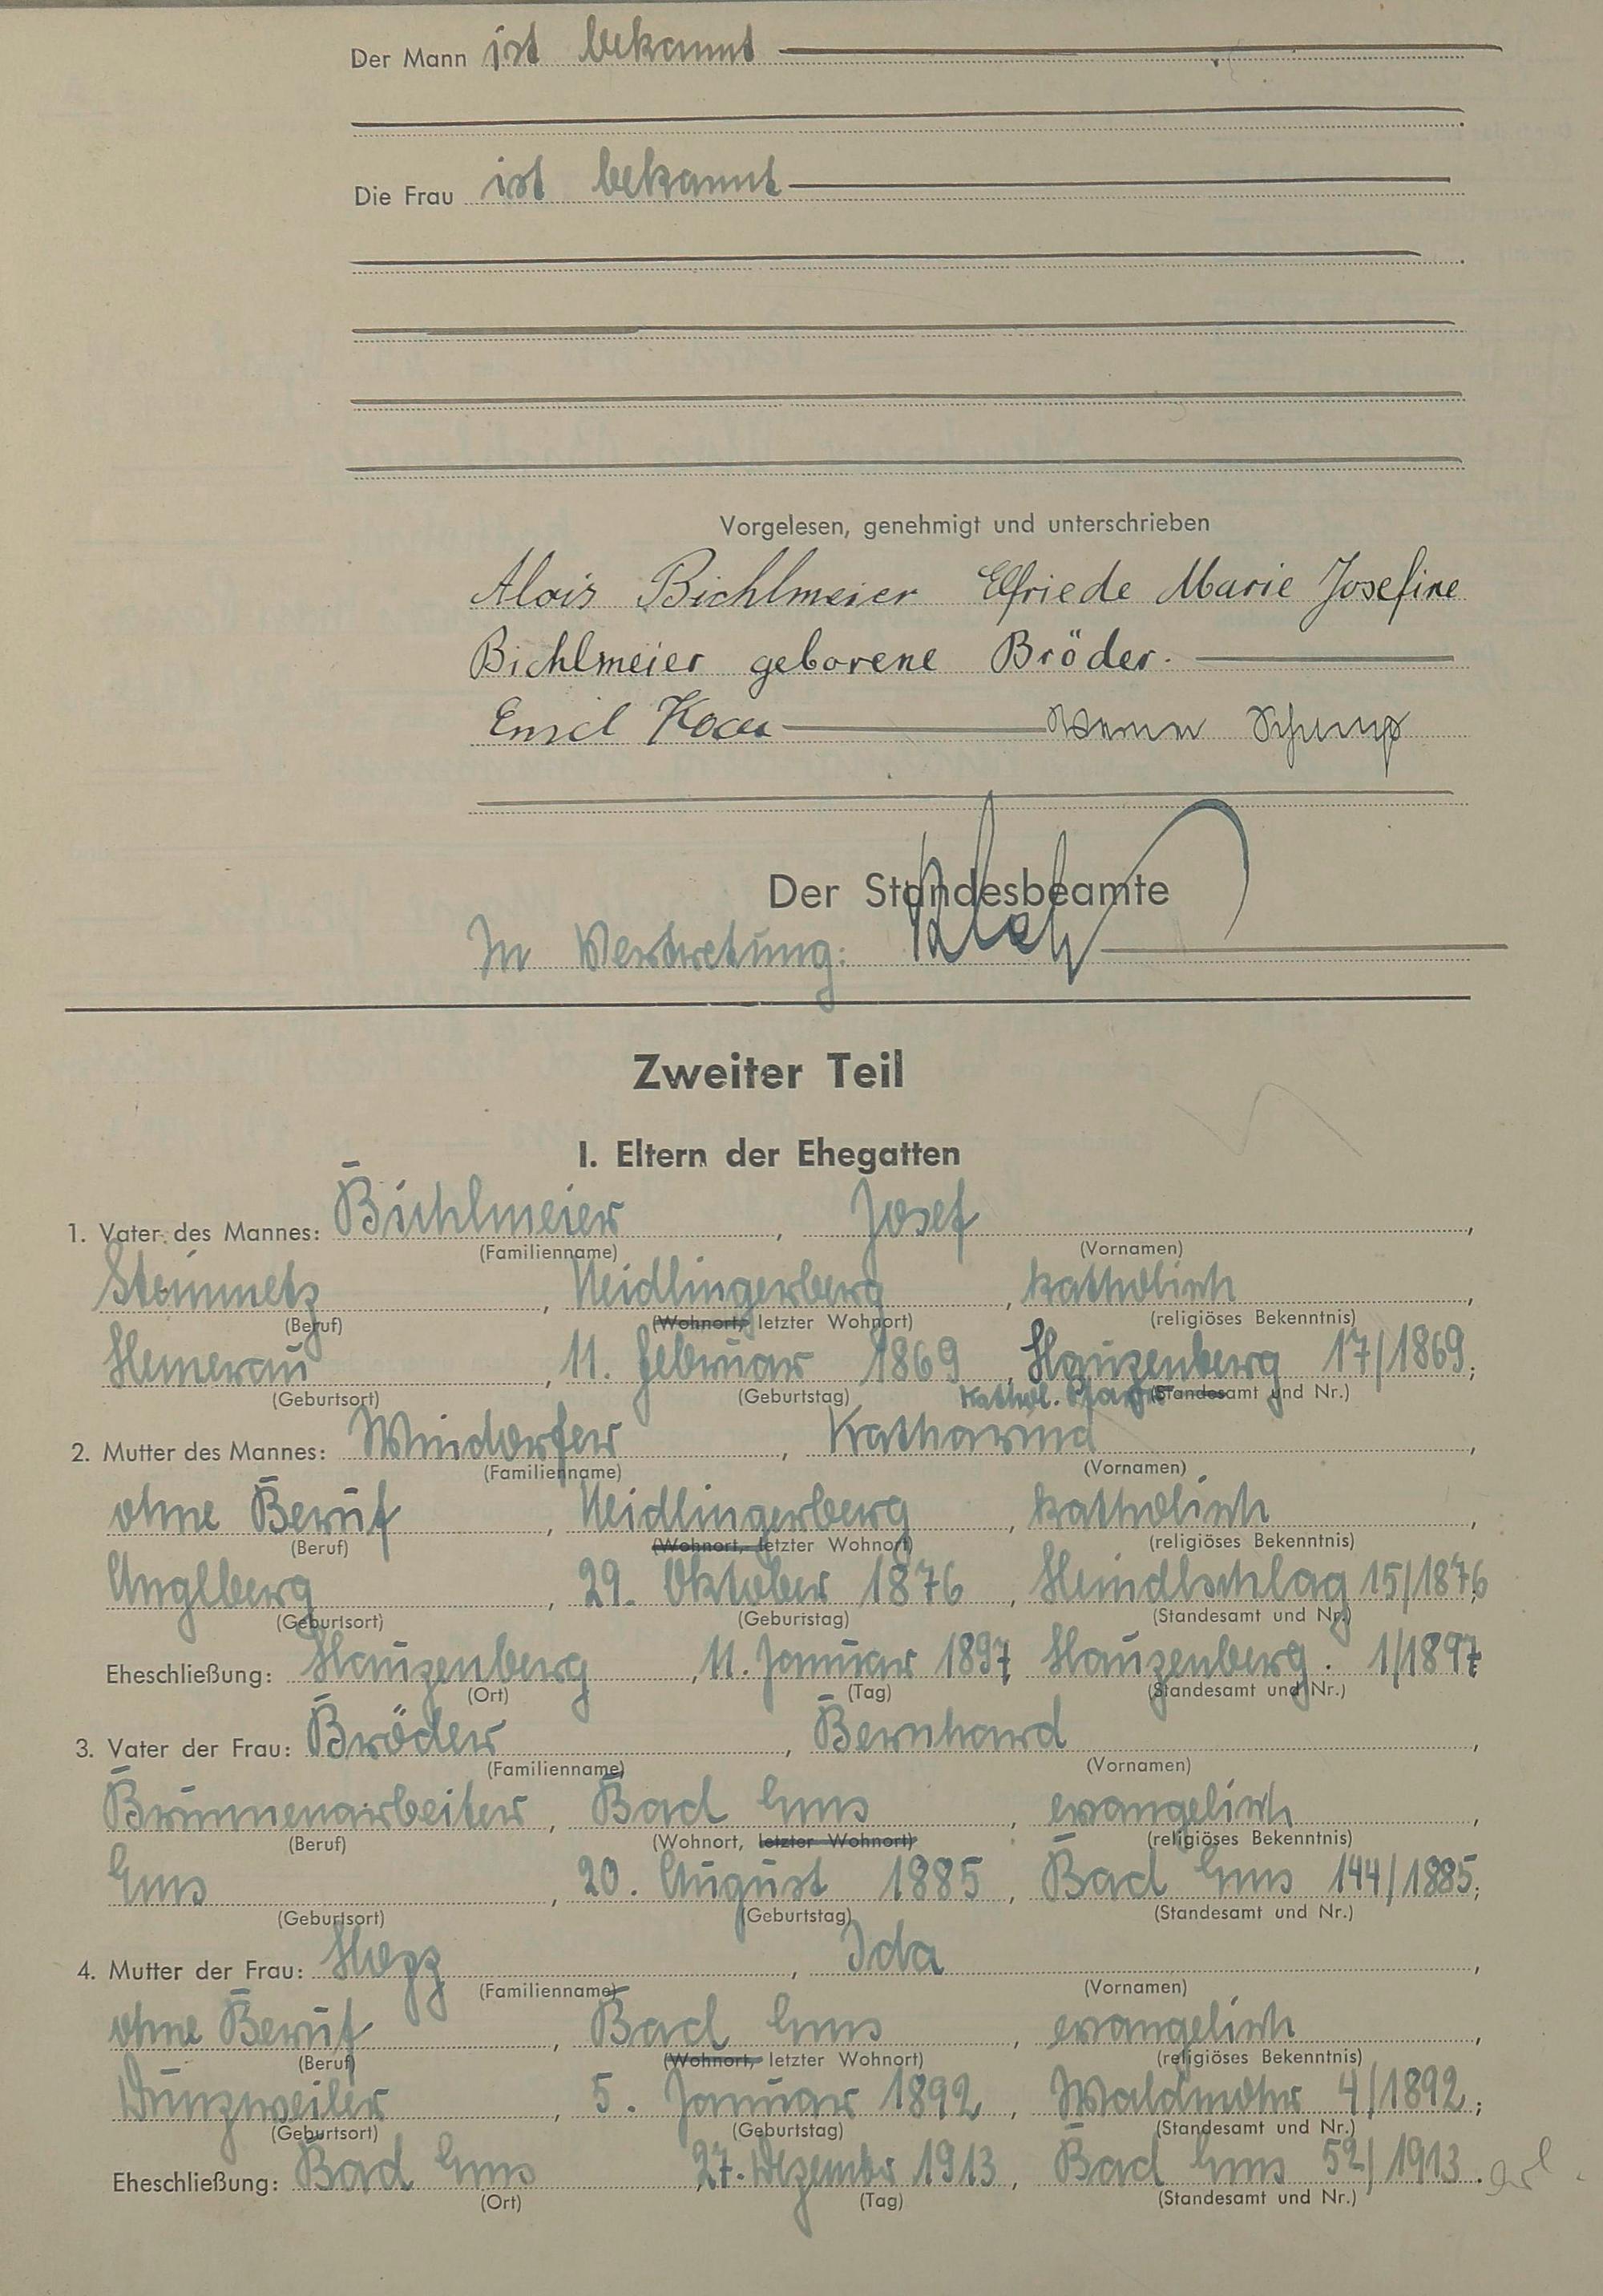 Der Mann ist bekannt
Die Frau ist bekannt
Vorgelesen, genehmigt und unterschrieben
Alois Bichlmeier Elfriede Marie Josefine
Bichlmeier geborene Bröder.
Emil Werner Schimp
Der Standesbeamte
In Vertretung:
Zweiter Teil
I. Eltern der Ehegatten
1. Vater des Mannes: Bichlmeier, Josef,
(Familienname) (Vornamen)
Steinmetz, Neidlingerberg, katholisch,
(Beruf) (Wohnort, letzter Wohnort) (religiöses Bekenntnis)
Hemerau, 11. Februar 1869, Hauzenberg 17/1869;
(Geburtsort) (Geburtstag) kathol. Pfarr (Standesamt und Nr.)
2. Mutter des Mannes: Windorfer, Katharina,
(Familienname) (Vornamen)
ohne Beruf, Neidlingerberg, katholisch,
(Beruf) (Wohnort, letzter Wohnort) (religiöses Bekenntnis)
Anglberg, 29. Oktober 1876, Heindlschlag 15/1876;
(Geburtsort) (Geburtstag) (Standesamt und Nr.)
Eheschließung: Hauzenberg, 11. Januar 1897 Hauzenberg. 1/1897
(Ort) (Tag) (Standesamt und Nr.)
3. Vater der Frau: Bröder, Bernhard,
(Familienname) (Vornamen)
Brunnenarbeiter, Bad Ems, evangelisch,
(Beruf) (Wohnort, letzter Wohnort) (religiöses Bekenntnis)
Ems, 20. August 1885, Bad Ems 144/1885;
(Geburtsort) (Geburtstag) (Standesamt und Nr.)
4. Mutter der Frau: Ida,
(Familienname) (Vornamen)
ohne Beruf, Bad Ems, evangelisch,
(Beruf) (Wohnort, letzter Wohnort) (religiöses Bekenntnis)
Dunzweiler, 5. Januar 1892, Waldmohr 4/1892;
(Geburtsort) (Geburtstag) (Standesamt und Nr.)
Eheschließung: Bad Ems, 27. Dezember 1913, Bad Ems 52/1913.
(Ort) (Tag) (Standesamt und Nr.)